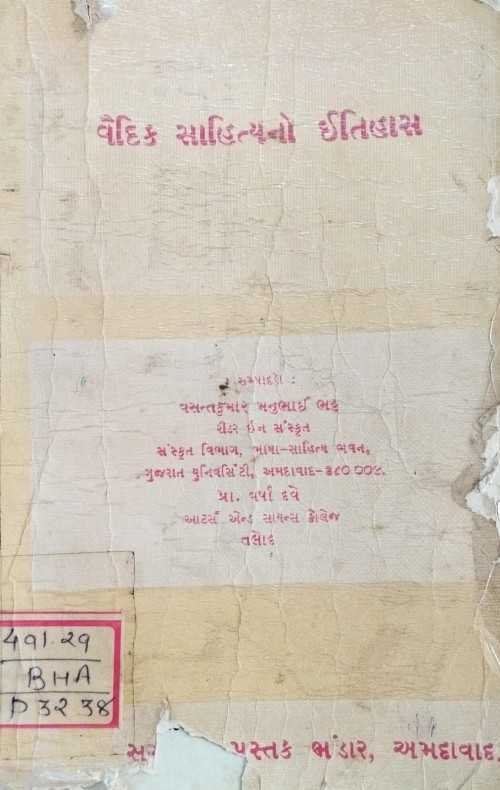 વૈદિક સાહિત્યનો ઈતિહાસ
સમ્પાદકો :
વસન્તકુમાર મનુભાઈ ભટ્ટ
રીડર ઇન સંસ્કૃત
સંસ્કૃત વિભાગ, ભાષા-સાહિત્ય ભવન,
ગુજરાત યુનિવર્સિટી, અમદાવાદ-૩૮૦ ૦૦૯.
પ્રા. વર્ષા દવે
આર્ટસ એન્ડ સાયન્સ કૉલેજ
તલોદ
491.29
BHA
D 3238
પુસ્તક ભંડાર, અમદાવાદ.